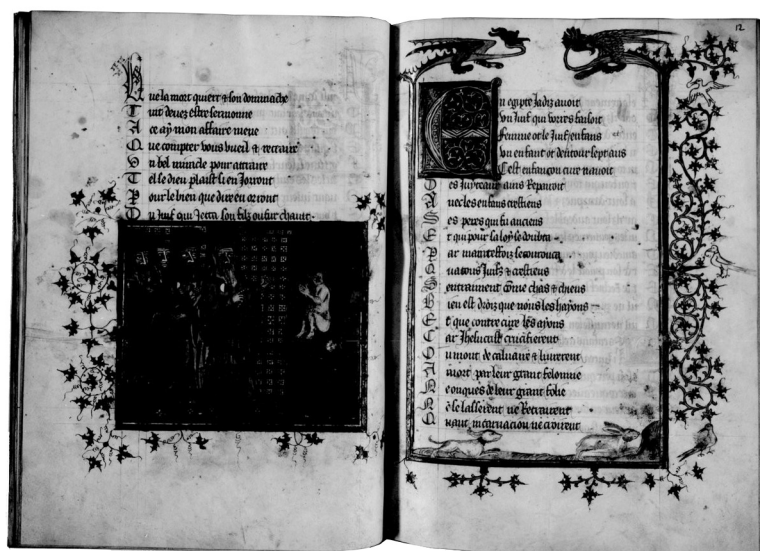 Que la mort quiert & son dommache
Tuit devez estre sermonne
A ce ay mon affaire mene
Que compter vous vueil & retraire
Un bel miracle pour attraire
Tel se dieu plaist si en Jouront
Pour le bien que dire en orront
Du Juif qui Jecta son filz ou four chaut
12
En egypte Jadiz avoit
Un Juif qui voirres faisoit
Femme ot le Juif enfans
Un enfant ot d'entour sept ans
C'est enfançon
es Juyf avint Repairoit
Avec les enfans crestiens
Ses peres qui fu anciens
Et qui pour sa loy le doubta
Par maintesfoiz le courouca
Qua vous Juifs & crestiens
Sentraiment come chas & chiens
Bien est droiz que nous les hayons
Et que contre cuer les ayons
Car Jhesucrist crucifierent
Ou mont de calvaire & livrerent
A mort par leur grant felonnie
Nonques de leur grant folie
Ne se lasserent ne Recrurent
Quant incarnacion ne crurent